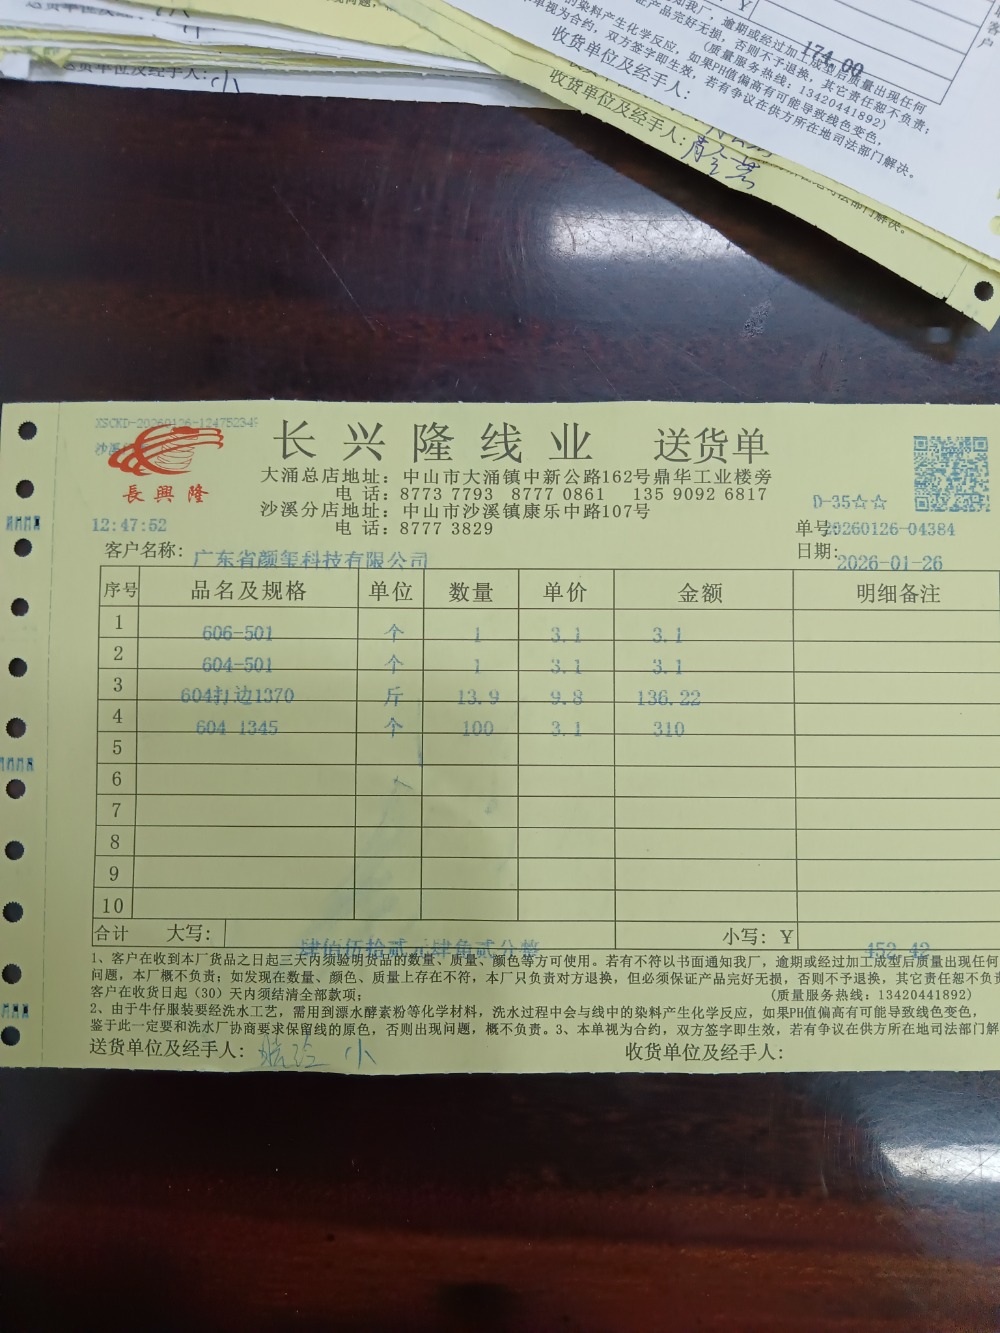 174.00
(质量服务热线：13420441892)
收货单位及经手人：
收货单位及经手人：
XSCKD-20260126-12475234
長興隆
长兴隆线业 送货单
大涌总店地址：中山市大涌镇中新公路162号鼎华工业楼旁
电 话：8773 7793 8777 0861 135 9092 6817
沙溪分店地址：中山市沙溪镇康乐中路107号
电 话：8777 3829
D-35☆☆
12:47:52
单号：20260126-04384
客户名称：广东省颜玺科技有限公司
日期：2026-01-26
序号 品名及规格 单位 数量 单价 金额 明细备注
1 606-501 个 1 3.1 3.1
2 604-501 个 1 3.1 3.1
3 604打边1370 斤 13.9 9.8 136.22
4 604 1345 个 100 3.1 310
5
6
7
8
9
10
合计 大写：肆佰伍拾贰元肆角贰分整 小写：￥452.42
1、客户在收到本厂货品之日起三天内须验明货品的数量、质量、颜色等方可使用。若有不符以书面通知我厂，逾期或经过加工成型后质量出现任何
问题，本厂概不负责；如发现在数量、颜色、质量上存在不符，本厂只负责对方退换，但必须保证产品完好无损，否则不予退换，其它责任恕不负责
客户在收货日起（30）天内须结清全部款项；
(质量服务热线：13420441892)
2、由于牛仔服装要经洗水工艺，需用到漂水酵素粉等化学材料，洗水过程中会与线中的染料产生化学反应，如果PH值偏高有可能导致线色变色，
鉴于此一定要和洗水厂协商要求保留线的原色，否则出现问题，概不负责。3、本单视为合约，双方签字即生效，若有争议在供方所在地司法部门解
送货单位及经手人： 小
收货单位及经手人：